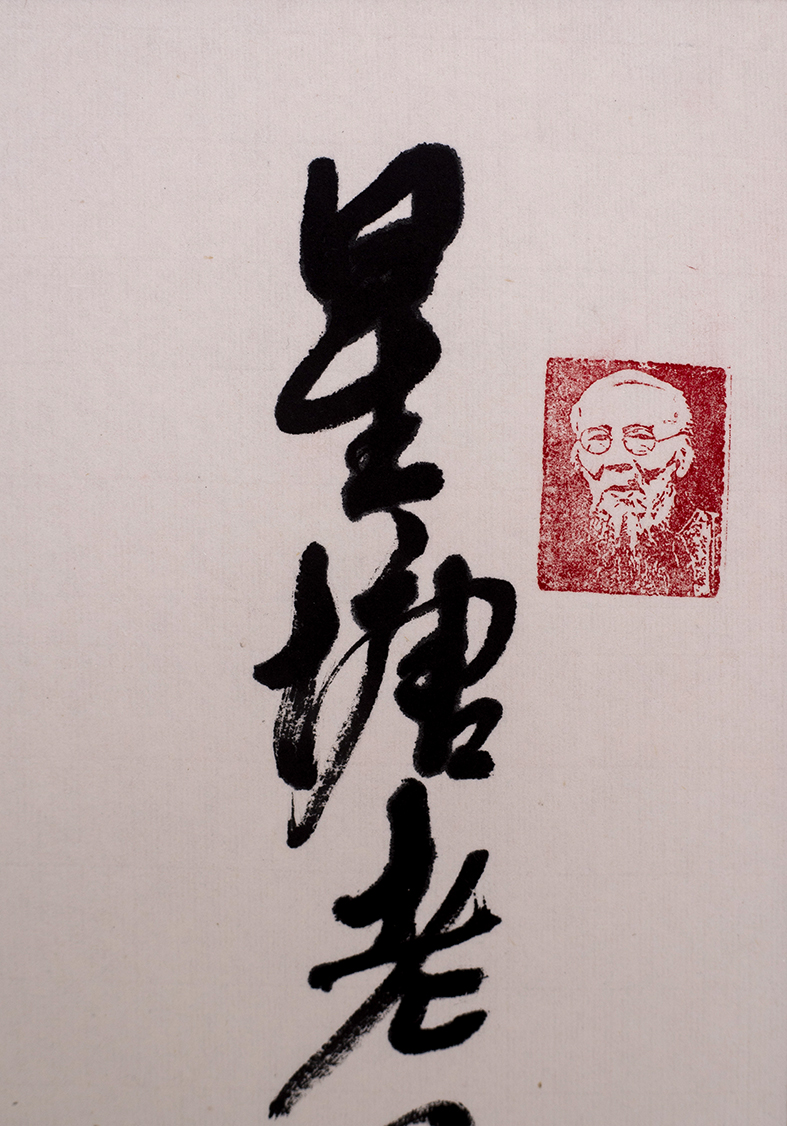 星塘老